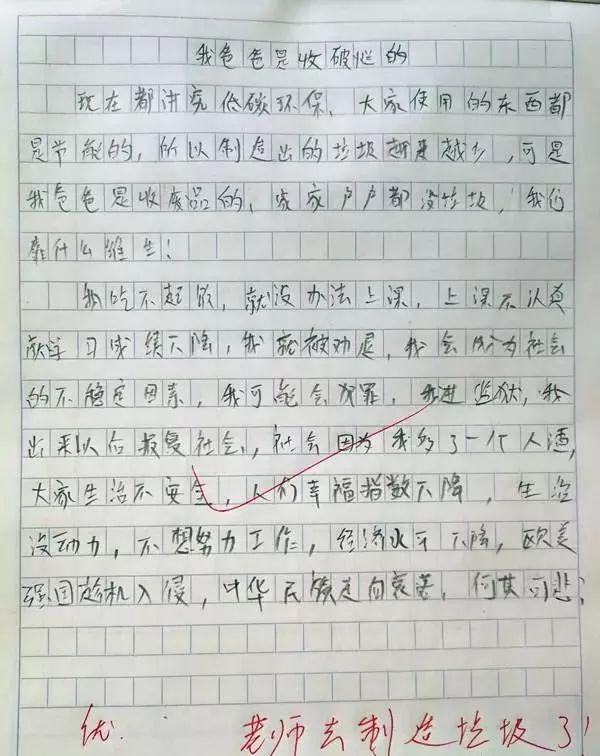 我爸爸是收破烂的
现在都讲究低碳环保，大家使用的东西都
是节能的，所以制造出的垃圾越来越少，可是
我爸爸是收废品的，家家户户都没垃圾，我们
靠什么维生！
我吃不起饭，就没办法上课，上课不认真
就学习成绩下降，我就被劝退，我会成为社会
的不稳定因素，我可能会犯罪，我进监狱，我
出来以后报复社会，社会因为我多了一个人渣，
大家生活不安全，人们幸福指数下降，生活
没动力，不想努力工作，经济水平下降，欧美
强国趁机入侵，中华民族走向衰落，何其可悲！
优. 老师去制造垃圾了！